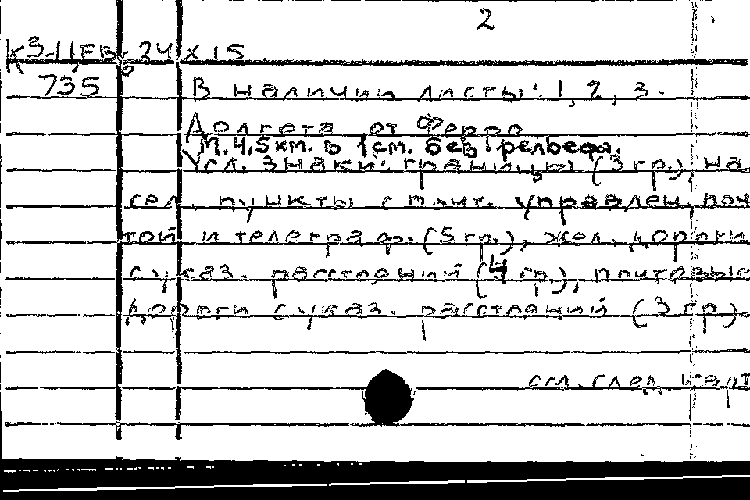 2
К 3-11, ЕВ, 24 х 15
735
В наличии листы: 1, 2, 3.
Долгота от Ферро
М. 4,5 км. в 1 см. без рельефа.
Усл. знаки: границы (3 гр.), на
сел. пункты с управлен. поч
той и телеграф. (5 гр.), жел. дороги
с указ. расстояний (4 гр.),
дороги с указ. расстояний (3 гр.)
см. след. карт